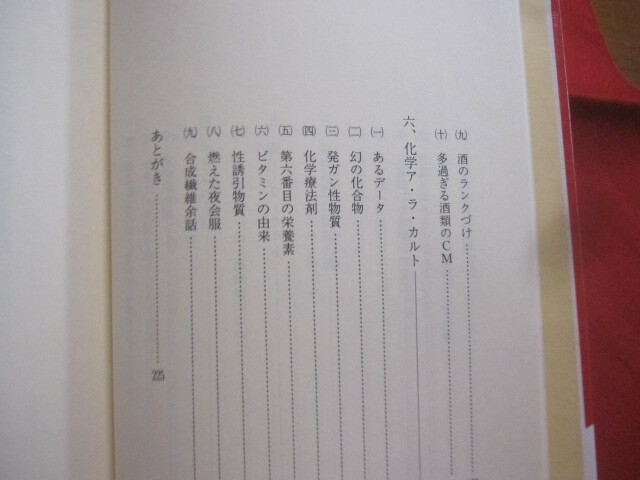 ㈨ 酒のランクづけ
㈩ 多過ぎる酒類のCM
六、化学ア・ラ・カルト
㈠ あるデータ
㈡ 幻の化合物
㈢ 発ガン性物質
㈣ 化学療法剤
㈤ 第六番目の栄養素
㈥ ビタミンの由来
㈦ 性誘引物質
㈧ 燃えた夜会服
㈨ 合成繊維余話
あとがき 225